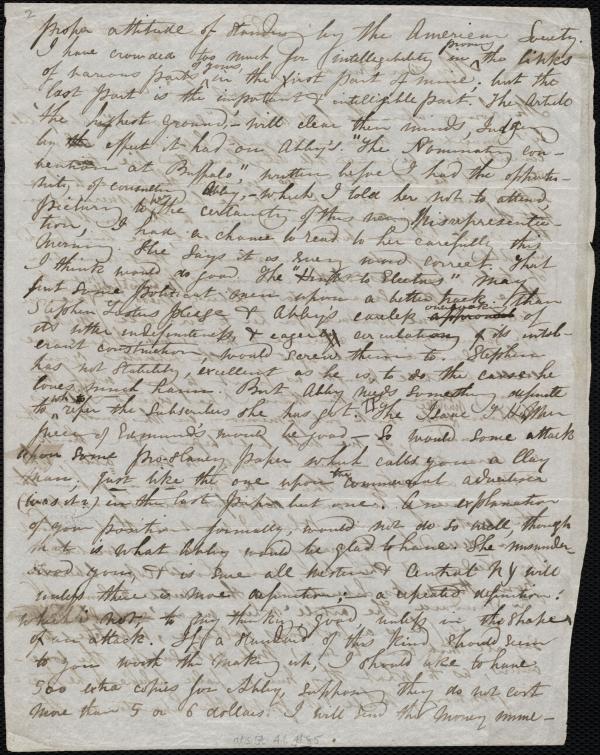 2
proper attitude of standing by the American Society.
I have crowded too much for intelligibility in proving the links
of various parts of yours in the first part of mine; but the
last part is the important & intelligible part. The Article
"the highest ground," will clear their minds, Judge
by the effect it had on Abby's. "The Nominating con-
vention at Buffalo," written before I had the opportu-
nity of consulting Abby, - which I told her not to attend,
picturing to her the certainty of this new Misrepresenta-
tion, I had a chance to read to her carefully this
morning. She says it is every word correct. That
I think would do good. The "Hints to Electors" may
put some political men upon a better track than
Stephen Foster's pledge & Abby's careless approval overlooking of
its utter indefiniteness & eager circulation of its intol-
erant construction, would screw them to. Stephen
has not Statutely, excellent as he is, to do the cause he
loves much harm. But Abby needs something definite
to which refer the Subscribers she has got. The Isaac T. Hopper
piece of Edmund's would be good - So would some attack
upon some Pro-slavery paper which calls you a Clay
man, just like the one upon the Commercial advertiser
(was it?) in the last paper but one. An explanation
of your position formally, would not do so well, though
that is what Abby would be glad to have. She misunder-
stood you, & is sure all Western & Central NY will
unless there is more definition: a repeated definition:
which is not, to my thinking, good, unless in the shape
of an attack. If a Hundred of this kind should seem
to you worth the making up, I should like to have
500 extra copies for Abby, supposing they do not cost
more than 5 or 6 dollars. I will send the money imme-